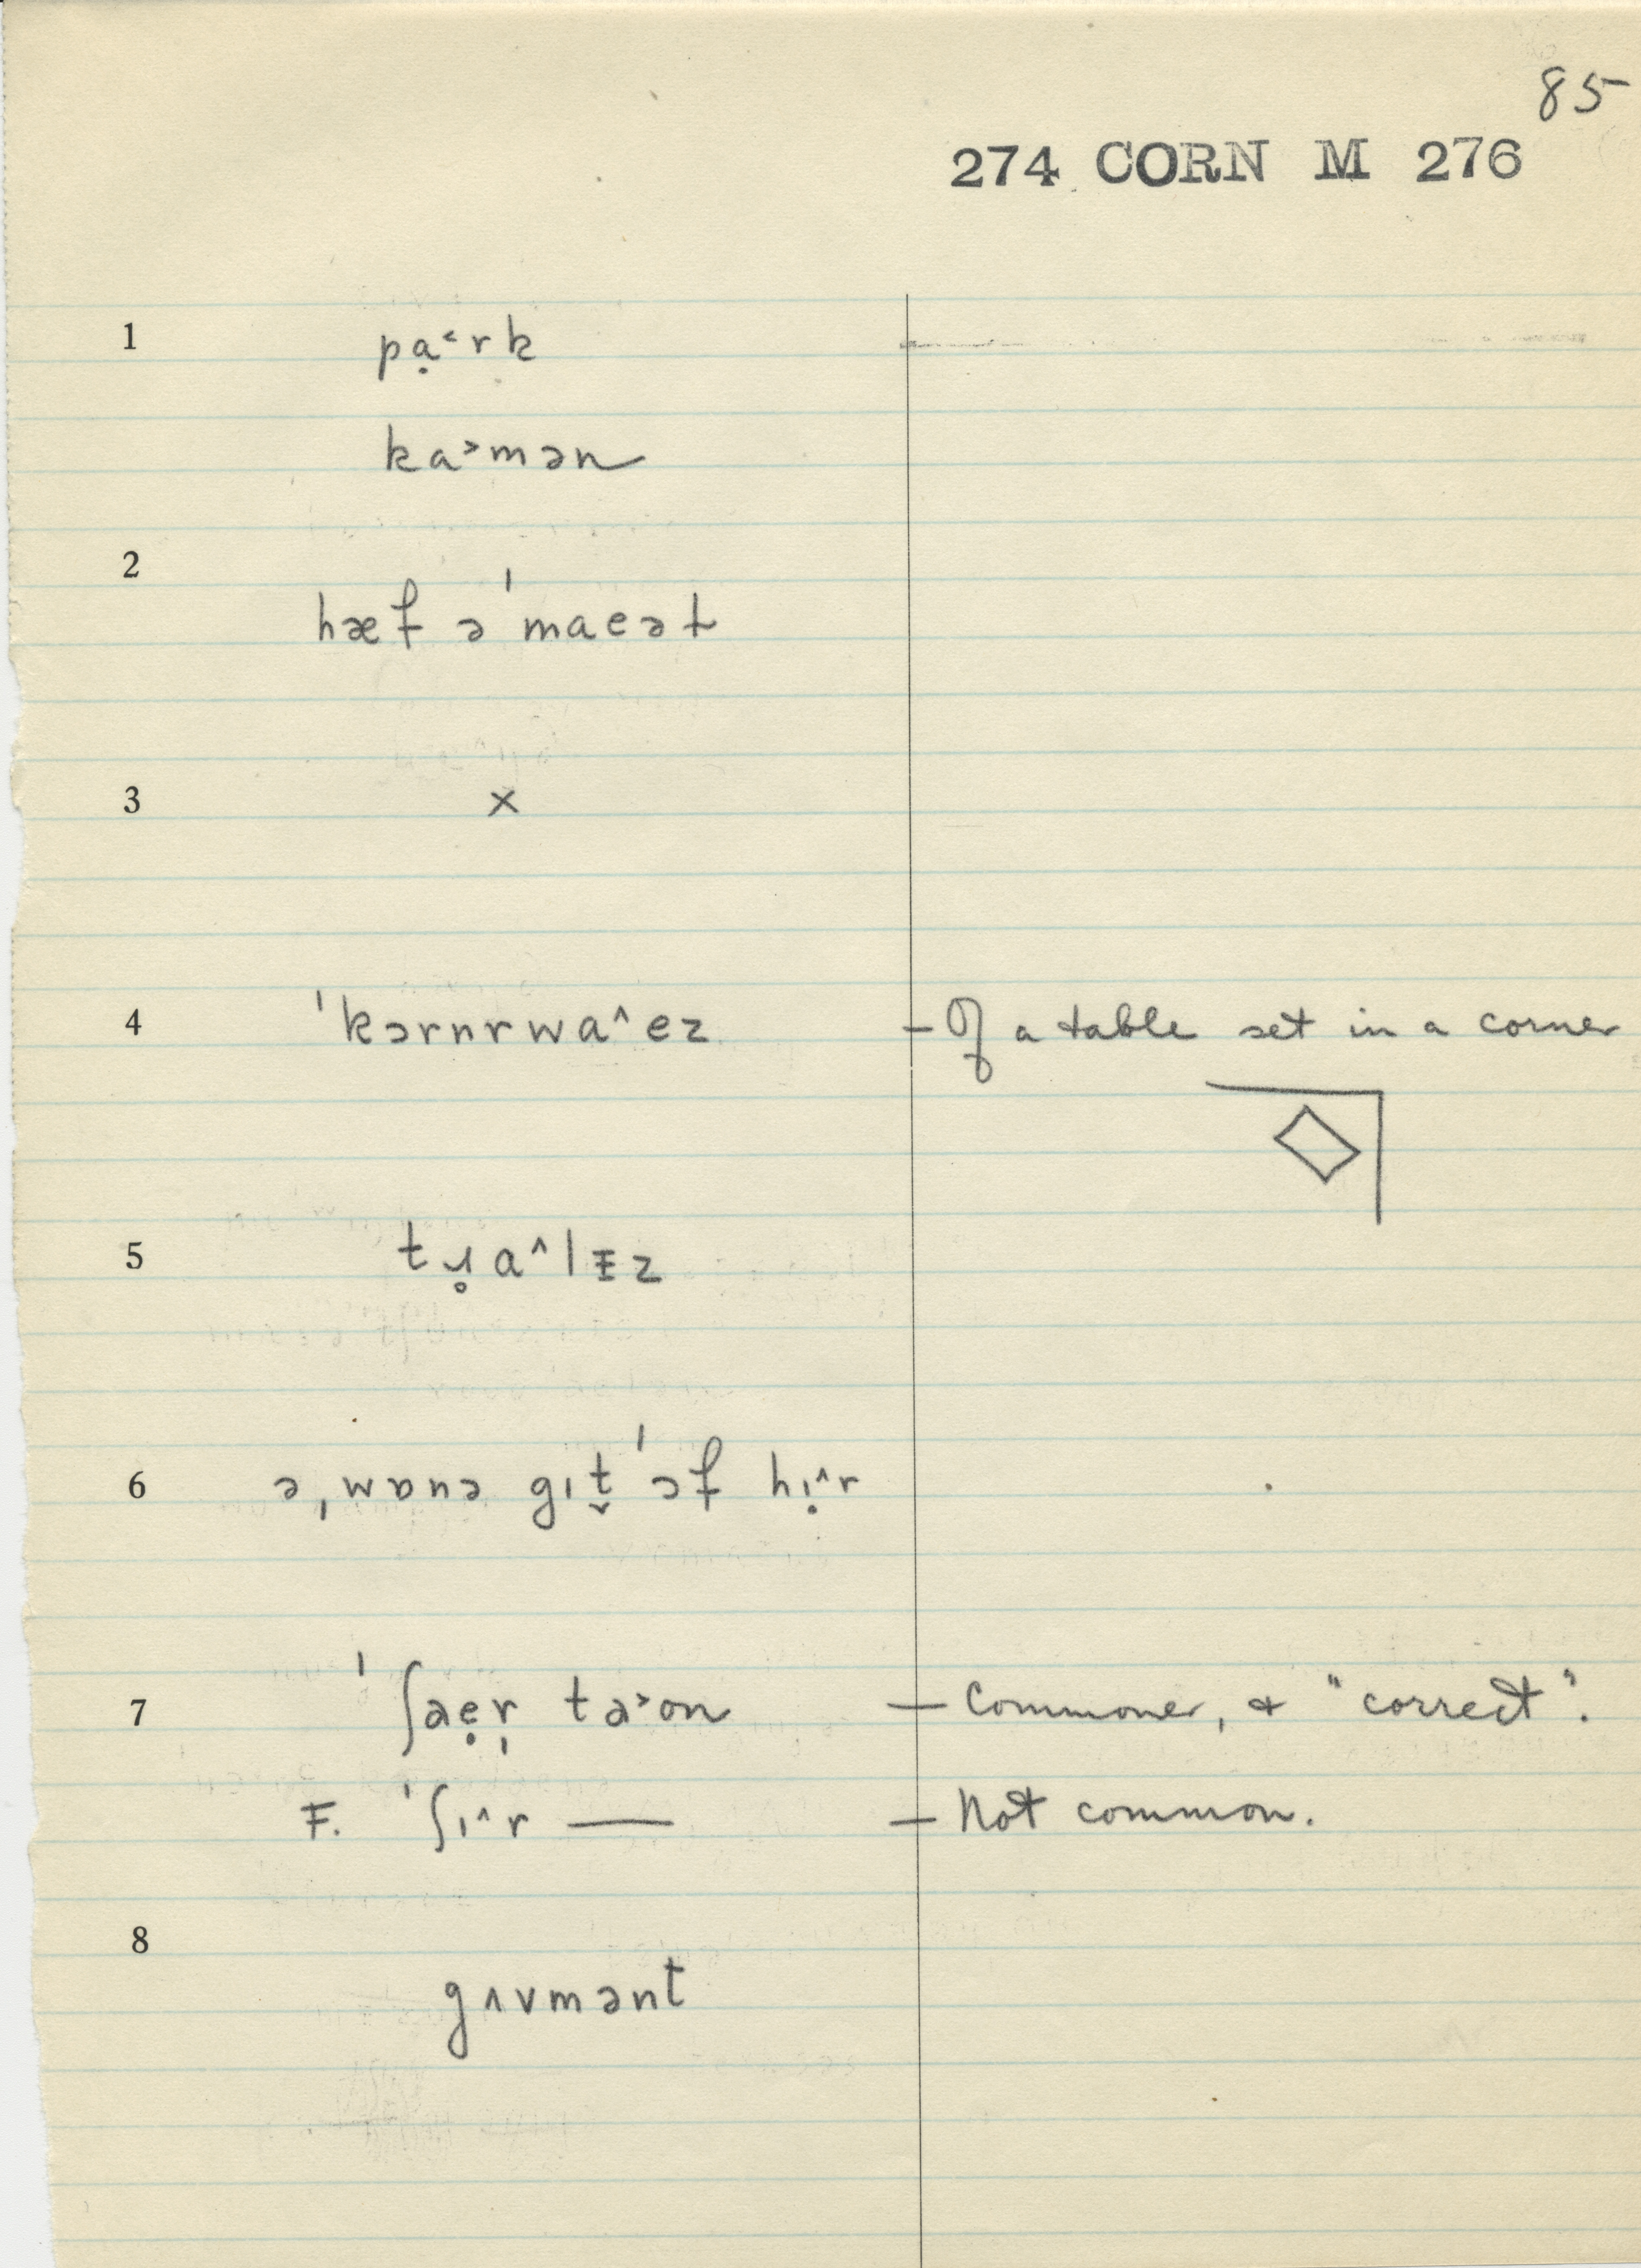 85
274 CORN M 276
1 pạ˂rk
ka˃mən
2 hæf ə ˈmaeət
3 ×
4 ˈkɔrnrwa˄ez – Of a table set in a corner
5 tɹ̥a˄lɪz
6 ə ˌwɒnə gɪt̬ ˈɔf hɪ̣˄r
7 ˈʃaẹr̩ ta˃on – Commoner, & "correct".
F. ˈʃɪ˄r — – Not common.
8 gʌvmənt